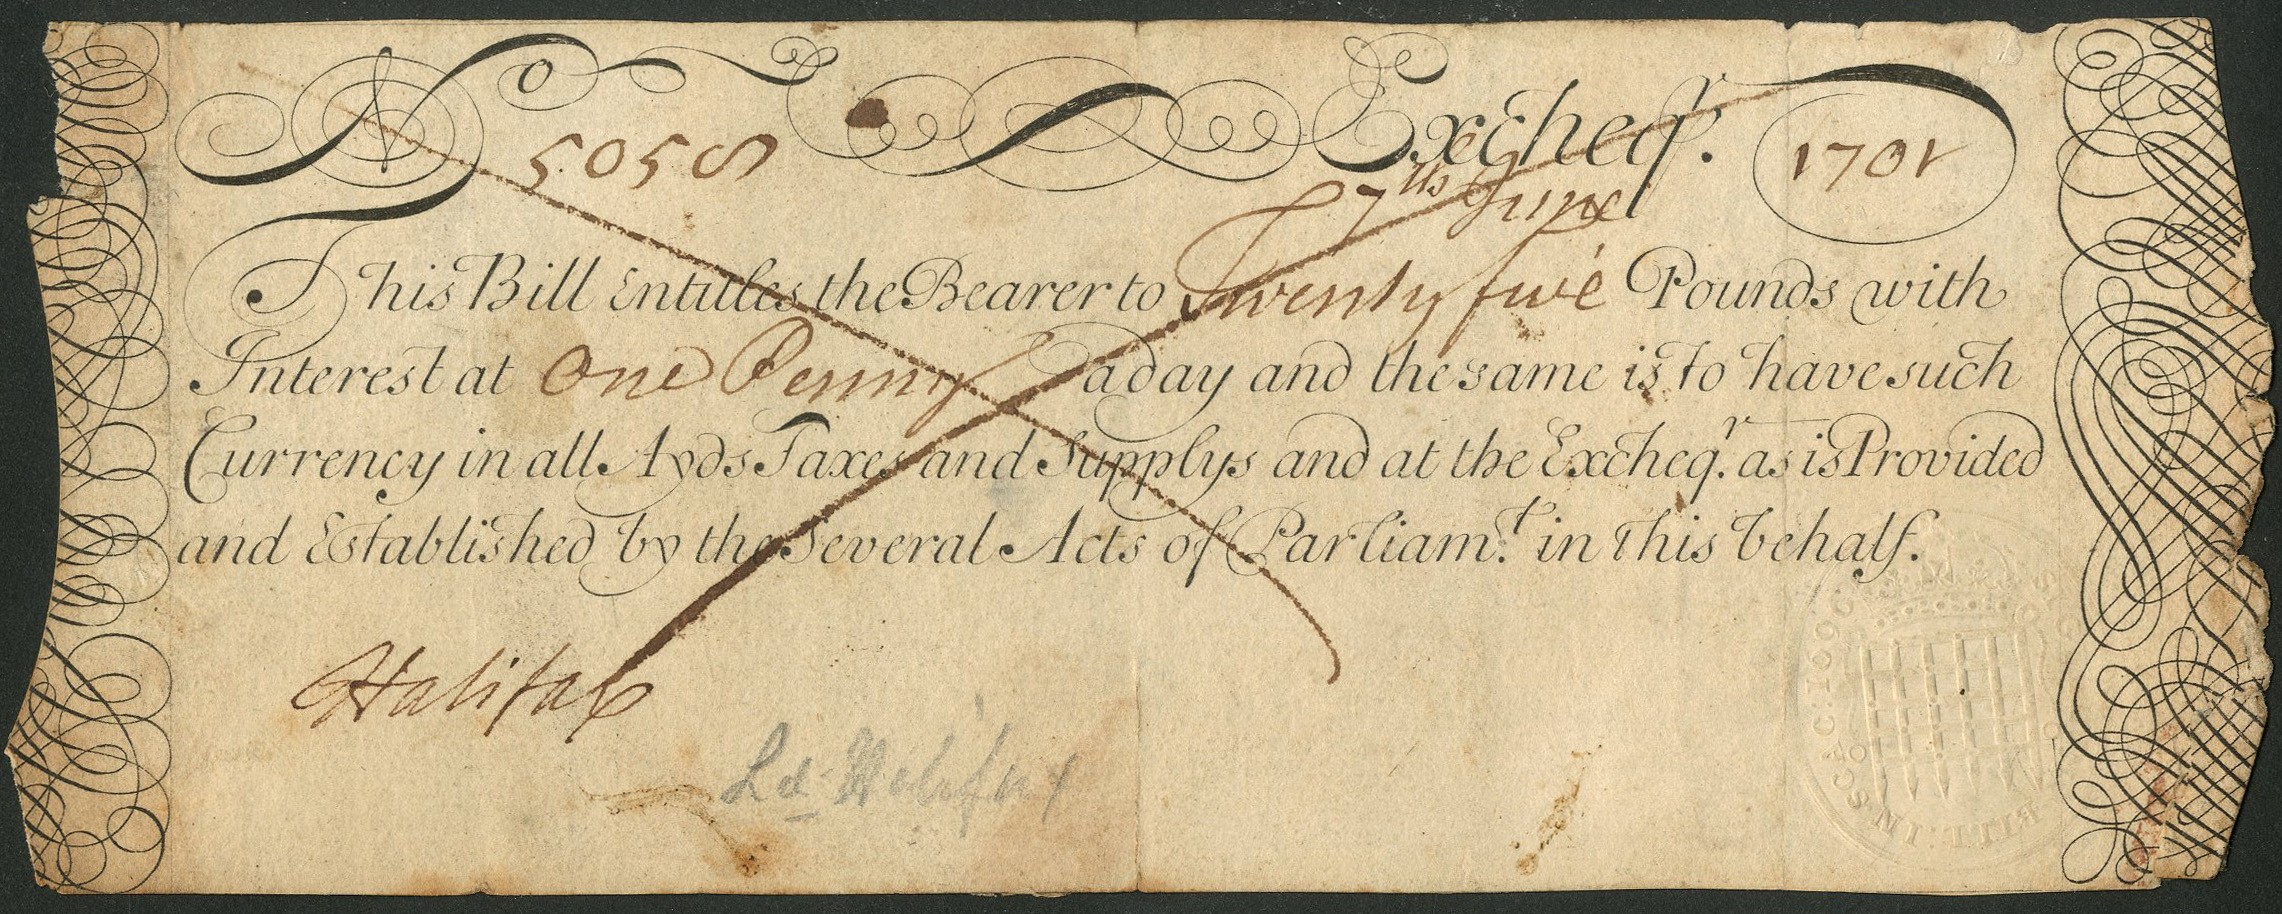 No 5058 Excheqr. 1701
27th June
This Bill Entitles the Bearer to Twenty five Pounds with
Interest at One Penny a day and the same is to have such
Currency in all Ayds Taxes and Supplys and at the Excheqr. as is Provided
and Established by the Several Acts of Parliamt. in this behalf.
Halifax
Ld. Halifax